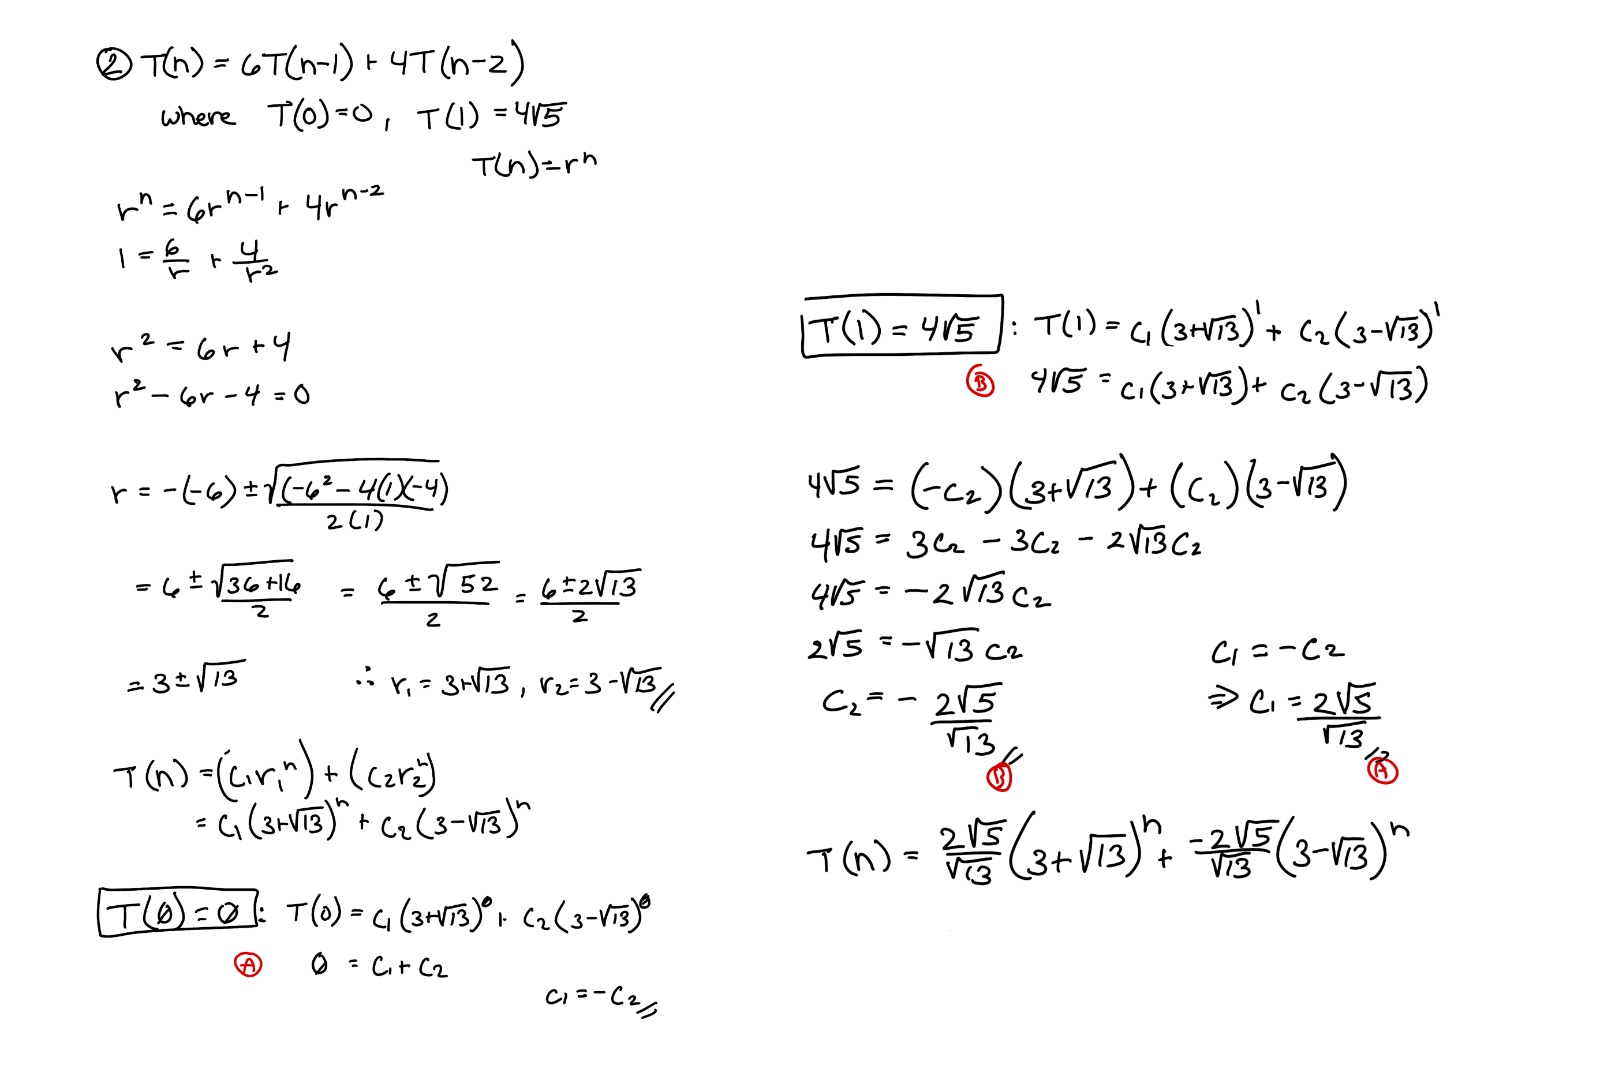 ② T(n) = 6T(n-1) + 4T(n-2)
where T(0)=0, T(1) = 4√5
T(n)=rⁿ
rⁿ = 6rⁿ⁻¹ + 4rⁿ⁻²
1 = 6/r + 4/r²
r² = 6r + 4
r² - 6r - 4 = 0
r = -(-6) ± √(-6² - 4(1)(-4) / 2(1)
= 6 ± √36+16 / 2 = 6 ± √52 / 2 = 6±2√13 / 2
= 3 ± √13 ∴ r₁ = 3+√13, r₂= 3-√13 //
T(n) = (c₁r₁ⁿ) + (c₂r₂ⁿ)
= c₁(3+√13)ⁿ + c₂(3-√13)ⁿ
T(0) = 0 : T(0) = c₁(3+√13)⁰ + c₂(3-√13)⁰
Ⓐ 0 = c₁ + c₂
c₁ = -c₂ //
T(1) = 4√5 : T(1) = c₁(3+√13)¹ + c₂(3-√13)¹
Ⓑ 4√5 = c₁(3+√13) + c₂(3-√13)
4√5 = (-c₂)(3+√13) + (c₂)(3-√13)
4√5 = 3c₂ - 3c₂ - 2√13c₂
4√5 = -2√13 c₂
2√5 = -√13 c₂ c₁ = -c₂
c₂ = - 2√5/√13 // ⇒ c₁ = 2√5/√13 //
Ⓑ Ⓐ
T(n) = 2√5/√13 (3+√13)ⁿ + -2√5/√13 (3-√13)ⁿ